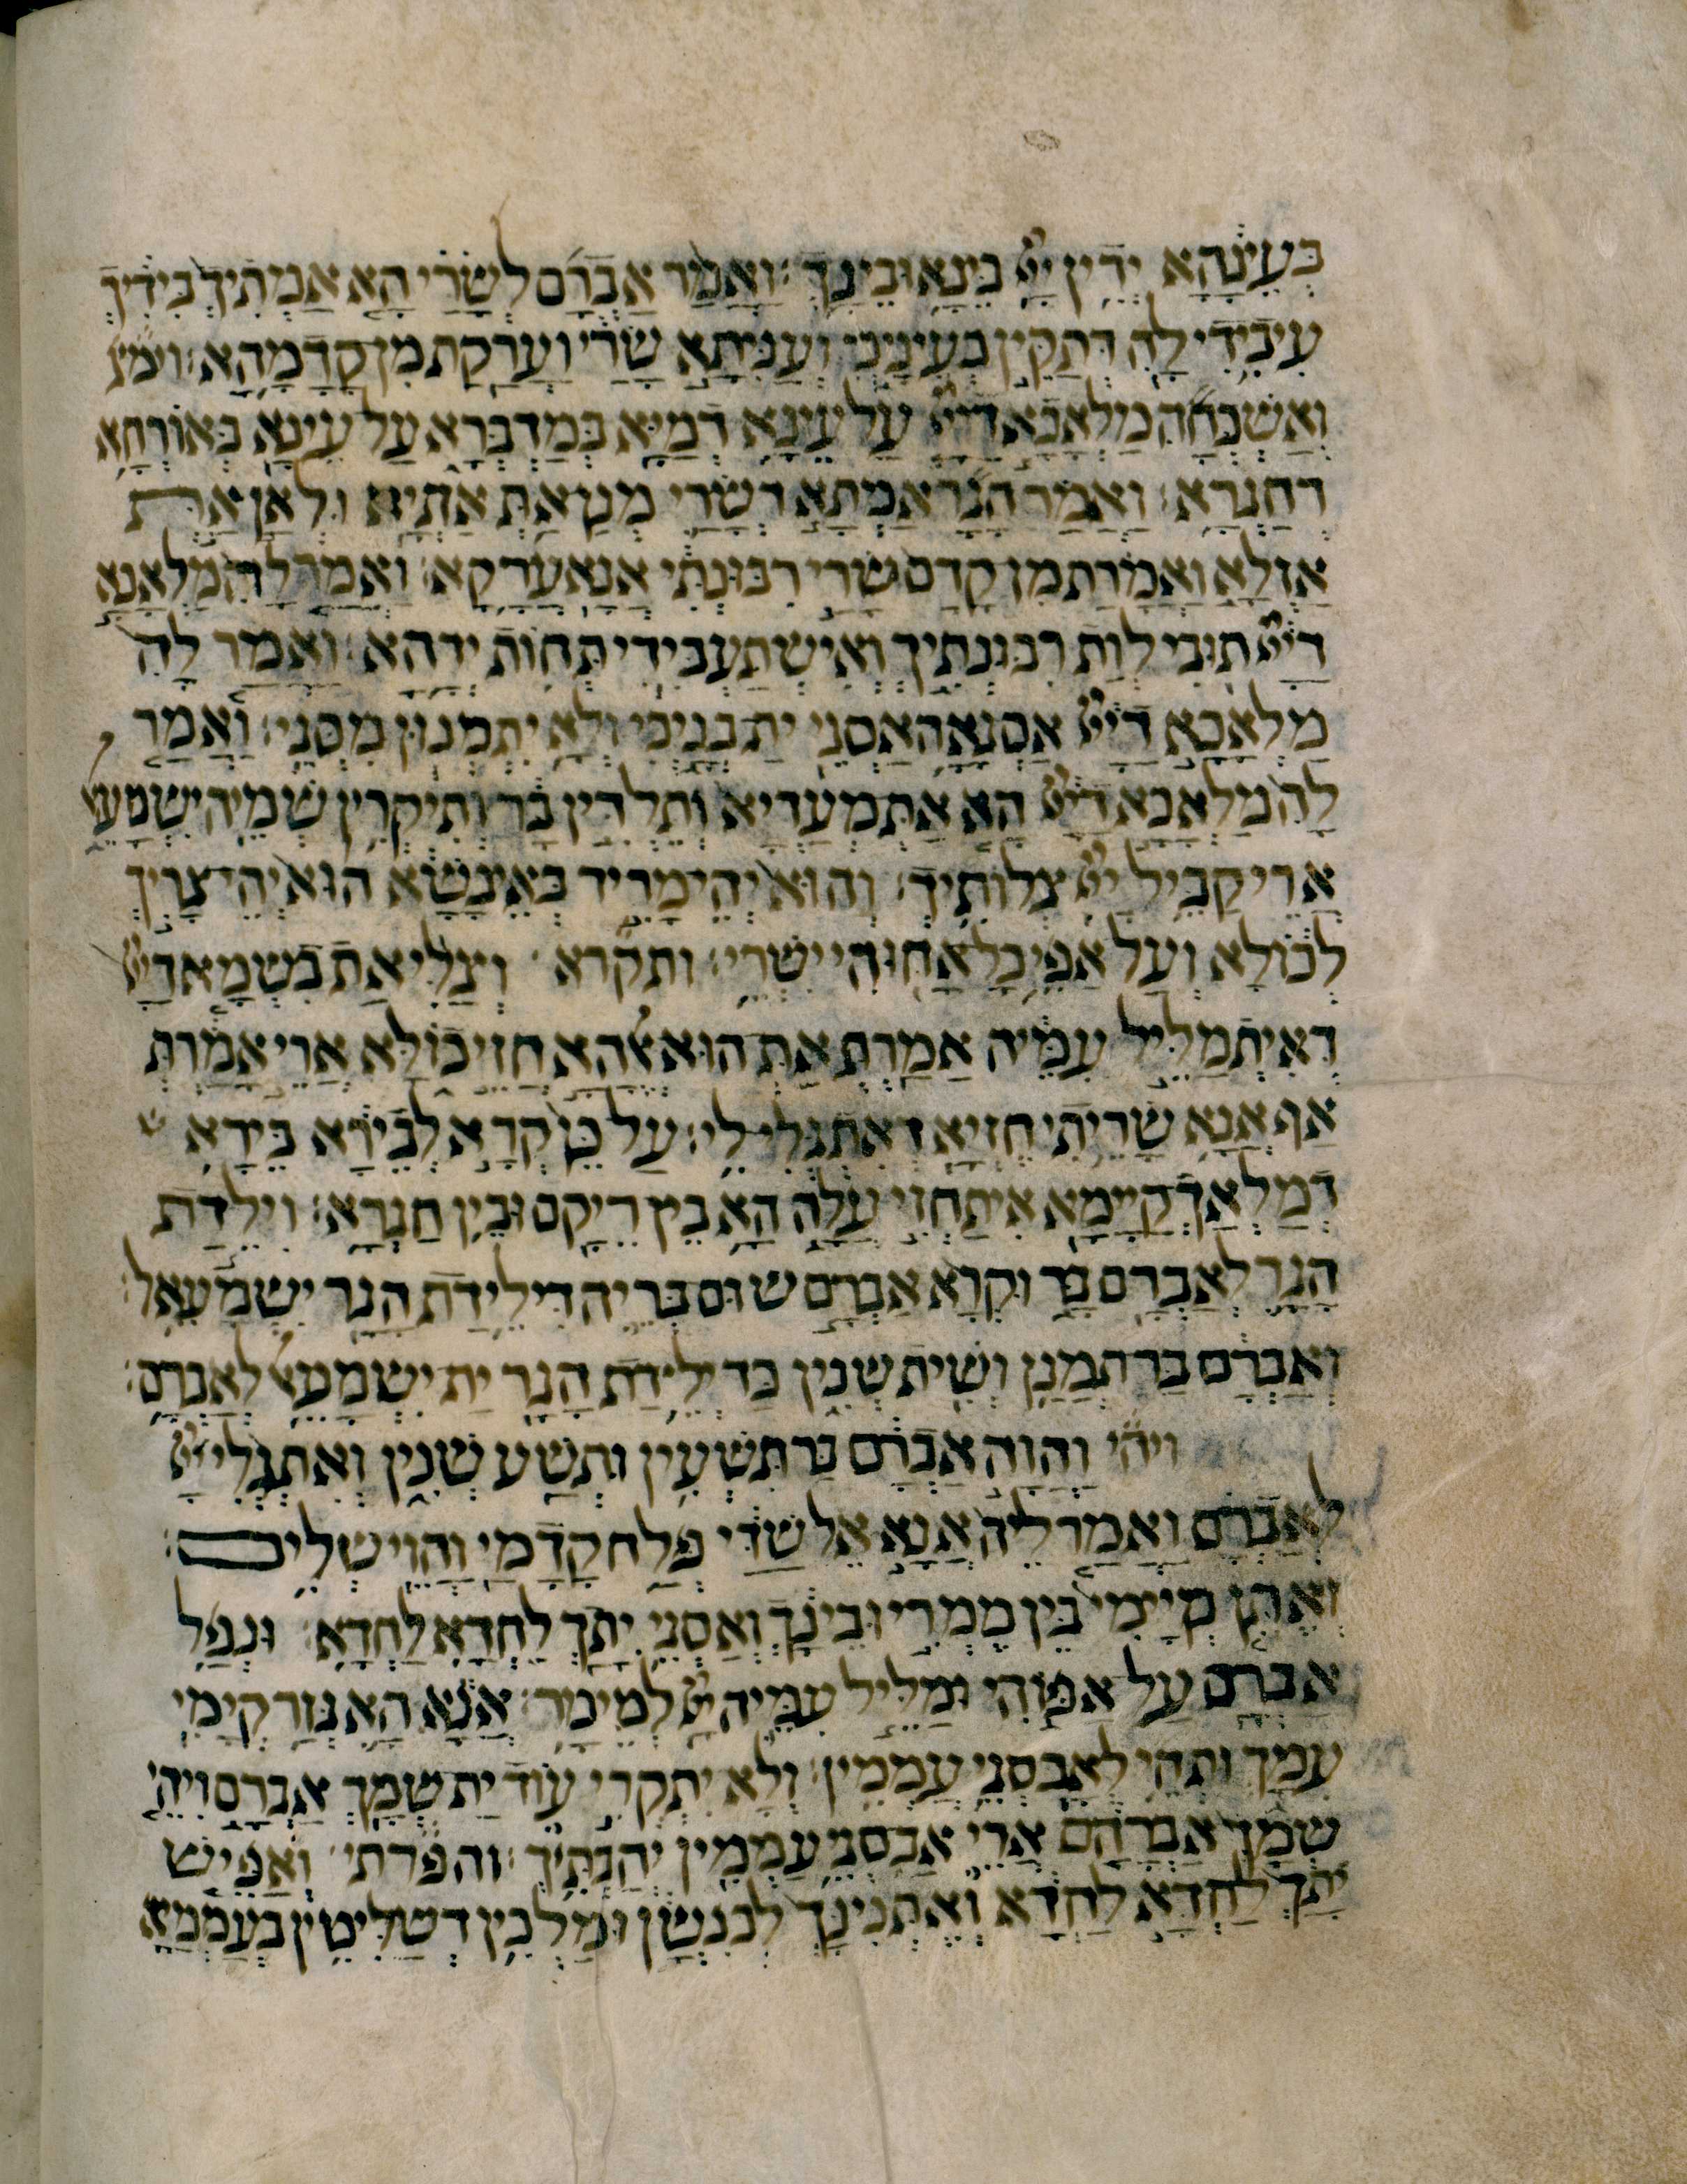 בְּעֵינָהָא יְדִין יְיָ בֵּינָא וּבֵינָךְ׃ וַאֲמַר אַבְרָם לְשָׂרַי הָא אַמְתִיךְ בִּידִיךְ
עִיבִידִי לָהּ דְּתַקִין בְּעֵינָיכִי וְעַנִּיתָא שָׂרַי וַעֲרַקַת מִן קֳדָמָהָא׃ וימצ
וְאַשְׁכְּחָהּ מַלְאֲכָא דַייָ עַל עֵינָא דְמַיָּא בְּמַדְבְּרָא עַל עֵינָא בְּאוֹרְחָא
דְחַגְרָא׃ וַאֲמַר הָגָר אַמְתָא דְשָׂרַי מְנָן אַתְּ אָתְיָא וּלְאָן אַתְּ
אָזְלָא וַאֲמַרַת מִן קֳדָם שָׂרַי רִבּוּנְתִּי אֲנָא עָרְקָא׃ וַאֲמַר לָהּ מַלְאֲכָא
דַייָ תּוּבִי לְוָת רִבּוּנְתִיךְ וְאִישְׁתַּעְבִּידִי תְּחוֹת יְדָהָא׃ וַאֲמַר לָהּ
מַלְאֲכָא דַייָ אַסְגָּאָה אַסְגֵּי יַת בְּנָיכִי וְלָא יִתְמְנוּן מִסְּגֵי׃ וַאֲמַר
לָהּ מַלְאֲכָא דַייָ הָא אַתְּ מְעַדְּיָא וּתְלִדִין בַּר וְתִיקְרִין שְׁמֵיהּ יִשְׁמָעֵאל
אֲרֵי קַבֵּיל יְיָ צְלוֹתִיךְ׃ וְהוּא יְהֵי מָרִיד בֶּאֱנָשָׁא הוּא יְהֵי צָרִיךְ
לְכוֹלָא וְעַל אַפֵּי כָל אֲחוּהִי יִשְׁרֵי׃ ותקרא וְצַלִּיאַת בִּשְׁמָא דַייָ
דְּאִיתְמַלֵּיל עִמֵּיהּ אֲמַרְתְּ אַתְּ הוּא אֱלָהָא חָזֵי כוֹלָּא אֲרֵי אֲמַרְתְּ
אַף אֲנָא שָׁרֵיתִי חָזְיָא דְּאִתְגְּלִי לִי׃ עַל כֵּן קְרָא לְבֵירָא בֵּירָא
דְּמַלְאַךְ קַיָּימָא אִיתַחְזִי עֲלַהּ הָא בֵין רְקָם וּבֵין חַגְרָא׃ וִילֵידַת
הָגָר לְאַבְרָם בַּר וּקְרָא אַבְרָם שׁוּם בְּרֵיהּ דִּילֵידַת הָגָר יִשְׁמָעֵאל׃
וְאַבְרָם בַּר תְּמָנַן וְשִׁית שְׁנִין כַּד יְלֵידַת הָגָר יַת יִשְׁמָעֵאל לְאַבְרָם׃
ויהי וַהֲוָה אַבְרָם בַּר תִּשְׁעִין וּתְשַׁע שְׁנִין וְאִתְגְּלִי יְיָ
לְאַבְרָם וַאֲמַר לֵיהּ אֲנָא אֵל שַׁדַּי פְּלַח קֳדָמַי וֶהֱוֵי שְׁלִים׃
וְאֶתֵּן קְיָמִי בֵּין מֵמְרִי וּבֵינָךְ וְאַסְגֵּי יָתָךְ לַחְדָּא לַחְדָּא׃ וּנְפַל
אַבְרָם עַל אַפּוֹהִי וּמַלֵּיל עִמֵּיהּ יְיָ לְמֵימַר׃ אֲנָא הָא גְּזַר קְיָמִי
עִמָּךְ וּתְהֵי לְאַב סְגֵי עַמְמִין׃ וְלָא יִתְקְרֵי עוֹד יַת שְׁמָךְ אַבְרָם וִיהֵי
שְׁמָךְ אַבְרָהָם אֲרֵי אַב סְגֵי עַמְמִין יְהַבְתִּיךְ׃ והפרתי וְאַפֵּישׁ
יָתָךְ לַחְדָּא לַחְדָּא וְאֶתְּנִינָךְ לְכִנְשָׁן וּמַלְכִין דְּשַׁלִּיטִין בְּעַמְמַיָּא